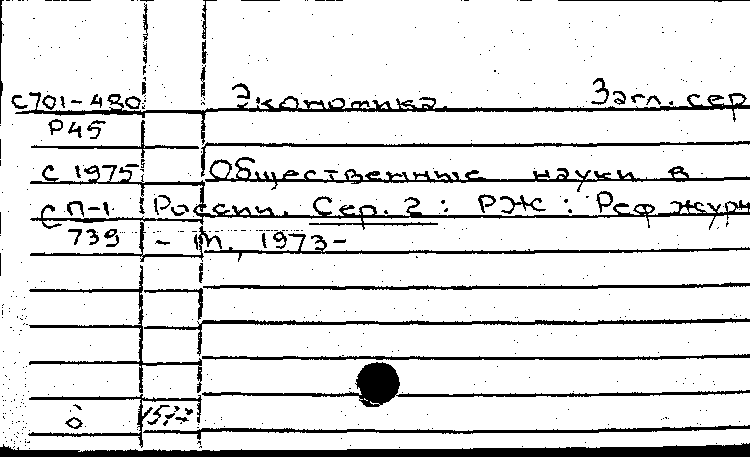 С701-480 Экономика. Загл. сер
Р45
С 1975 Общественные науки в
С П-1 России. Сер. 2 : РЖ : Реф журн
739 - М., 1973-